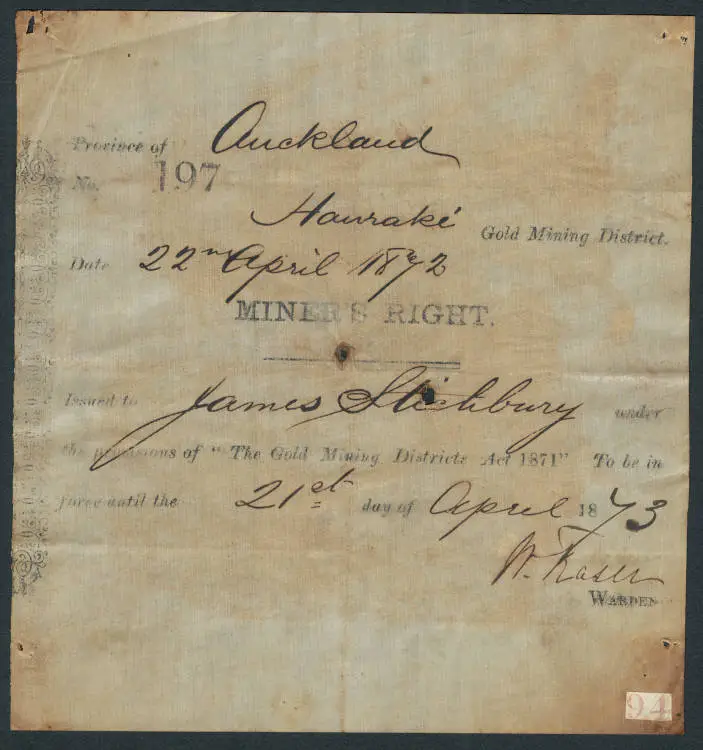 Province of Auckland
No. 197
Hauraki Gold Mining District.
Date 22nd April 1872
MINER'S RIGHT.
Issued to James Stichbury under
the provisions of "The Gold Mining Districts Act 1871" To be in
force until the 21st day of April 1873
W. Fraser
WARDEN
94